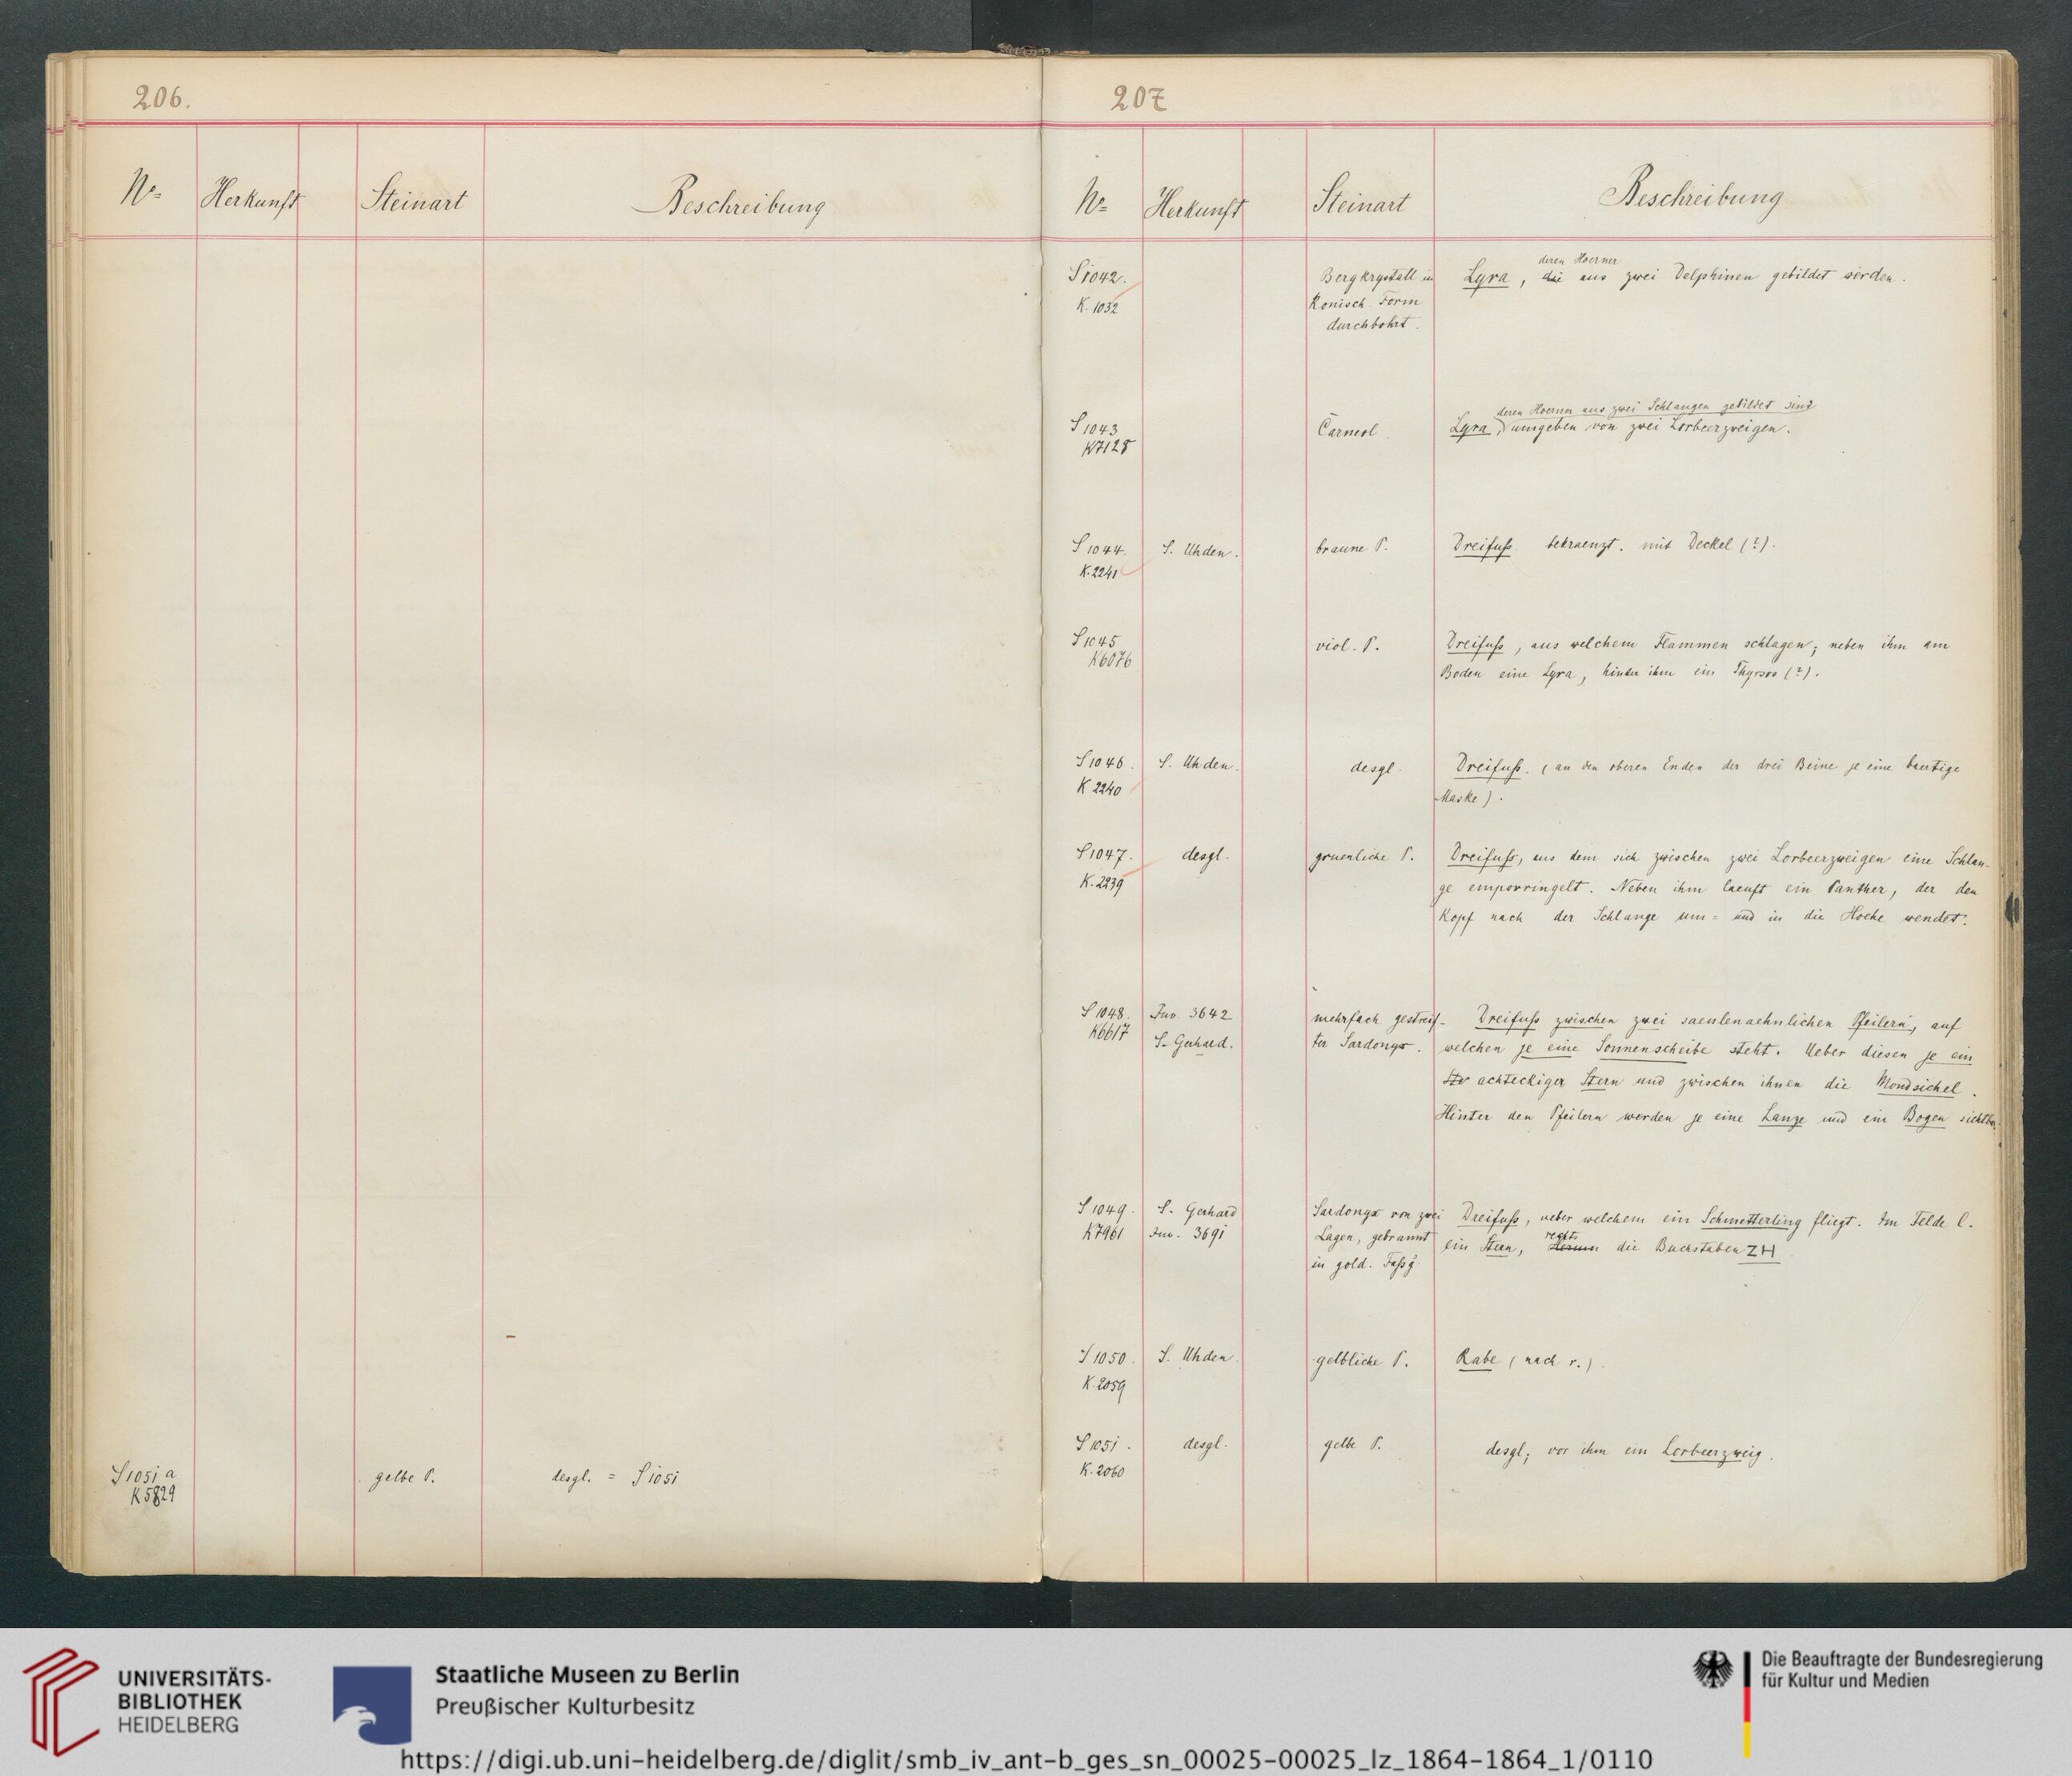 206.
Nº Herkunft Steinart Beschreibung
S 1051 a gelbe P. desgl. = S 1051
K 5829
207
Nº Herkunft Steinart Beschreibung
deren Hoerner
S 1042. Bergkrystall in Lyra, die aus zwei Delphinen gebildet werden.
K. 1032 Konisch Form
durchbohrt.
deren Hoerner aus zwei Schlangen gebildet sind
S 1043 Carneol. Lyra, umgeben von zwei Lorbeerzweigen.
K 7128
S 1044. S. Uhden. braune P. Dreifuß. bekraenzt. mit Deckel (?).
K. 2241
S 1045 viol. P. Dreifuß, aus welchem Flammen schlagen; neben ihm am
K 6076 Boden eine Lyra, hinter ihm ein Thyrsos (?).
S 1046. S. Uhden. desgl. Dreifuß. (an den oberen Enden der drei Beine je eine baertige
K 2240 Maske).
S 1047. desgl. gruenliche P. Dreifuß, aus dem sich zwischen zwei Lorbeerzweigen eine Schlan-
K. 2239 ge emporringelt. Neben ihm laeuft ein Panther, der den
Kopf nach der Schlange um= und in die Hoehe wendet.
S 1048. Inv. 3642 mehrfach gestreif- Dreifuß zwischen zwei saeulenaehnlichen Pfeilern, auf
K 6617 S. Gerhard. ter Sardonyx. welchen je eine Sonnenscheibe steht. Ueber diesen je ein
Ste achteckiger Stern und zwischen ihnen die Mondsichel.
Hinter den Pfeilern werden je eine Lanze und ein Bogen sichtbar.
S 1049. S. Gerhard Sardonyx von zwei Dreifuß, ueber welchem ein Schmetterling fliegt. Im Felde l.
K 7961 Inv. 3691 Lagen, gebrannt ein Stern, rechts die Buchstaben ZH
in gold. Faßg.
S 1050. S. Uhden. gelbliche P. Rabe (nach r.).
K. 2059
S 1051. desgl. gelbe P. desgl; vor ihm ein Lorbeerzweig.
K. 2060
UNIVERSITÄTS-
BIBLIOTHEK
HEIDELBERG
Staatliche Museen zu Berlin
Preußischer Kulturbesitz
Die Beauftragte der Bundesregierung
für Kultur und Medien
https://digi.ub.uni-heidelberg.de/diglit/smb_iv_ant-b_ges_sn_00025-00025_lz_1864-1864_1/0110